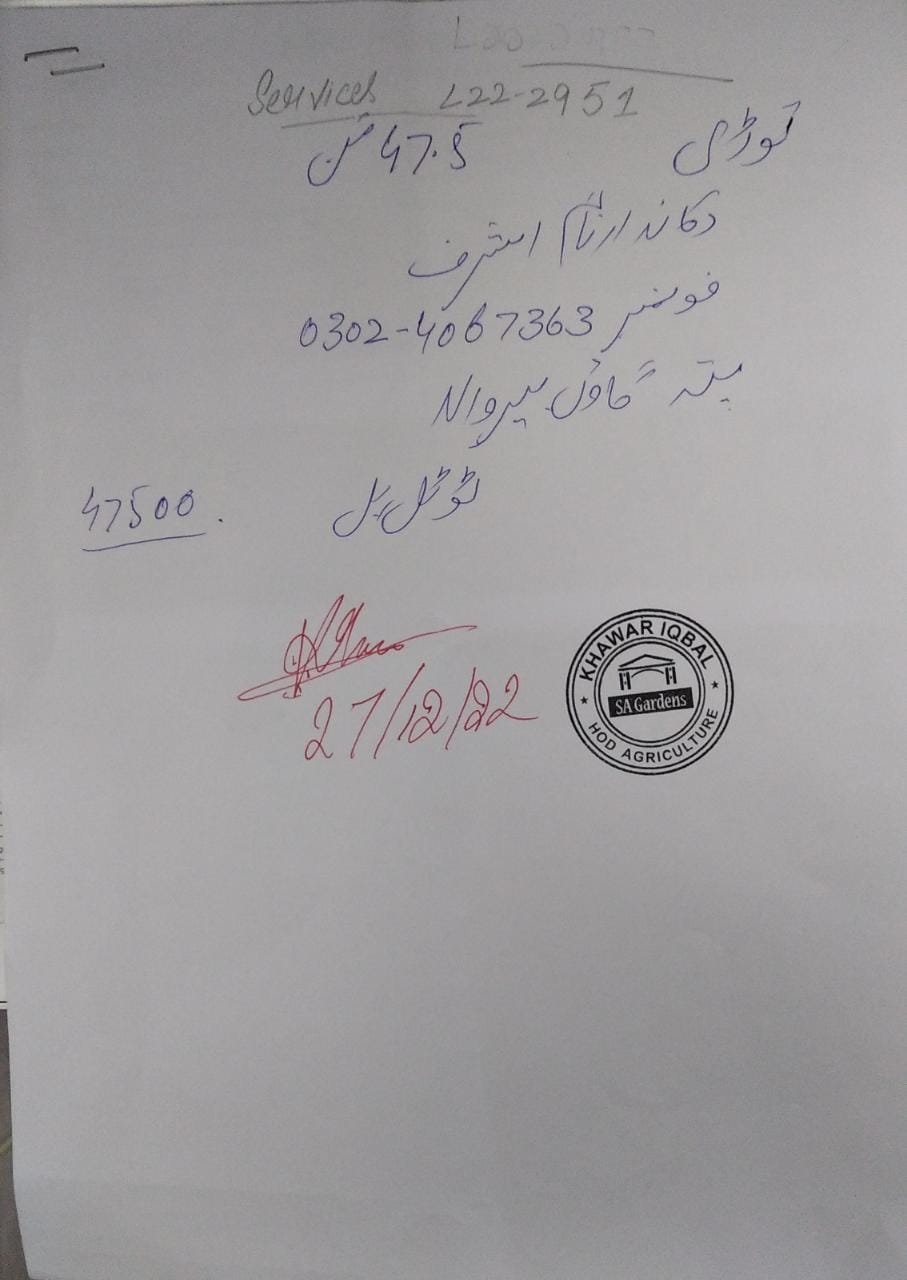 Services L22-2951
توڑی 47.5 من
دکاندار نام اشرف
فون نمبر 0302-4067363
پتہ گاؤں پیروالا
ٹوٹل بل 47500
27/12/22
KHAWAR IQBAL
SA Gardens
HOD AGRICULTURE